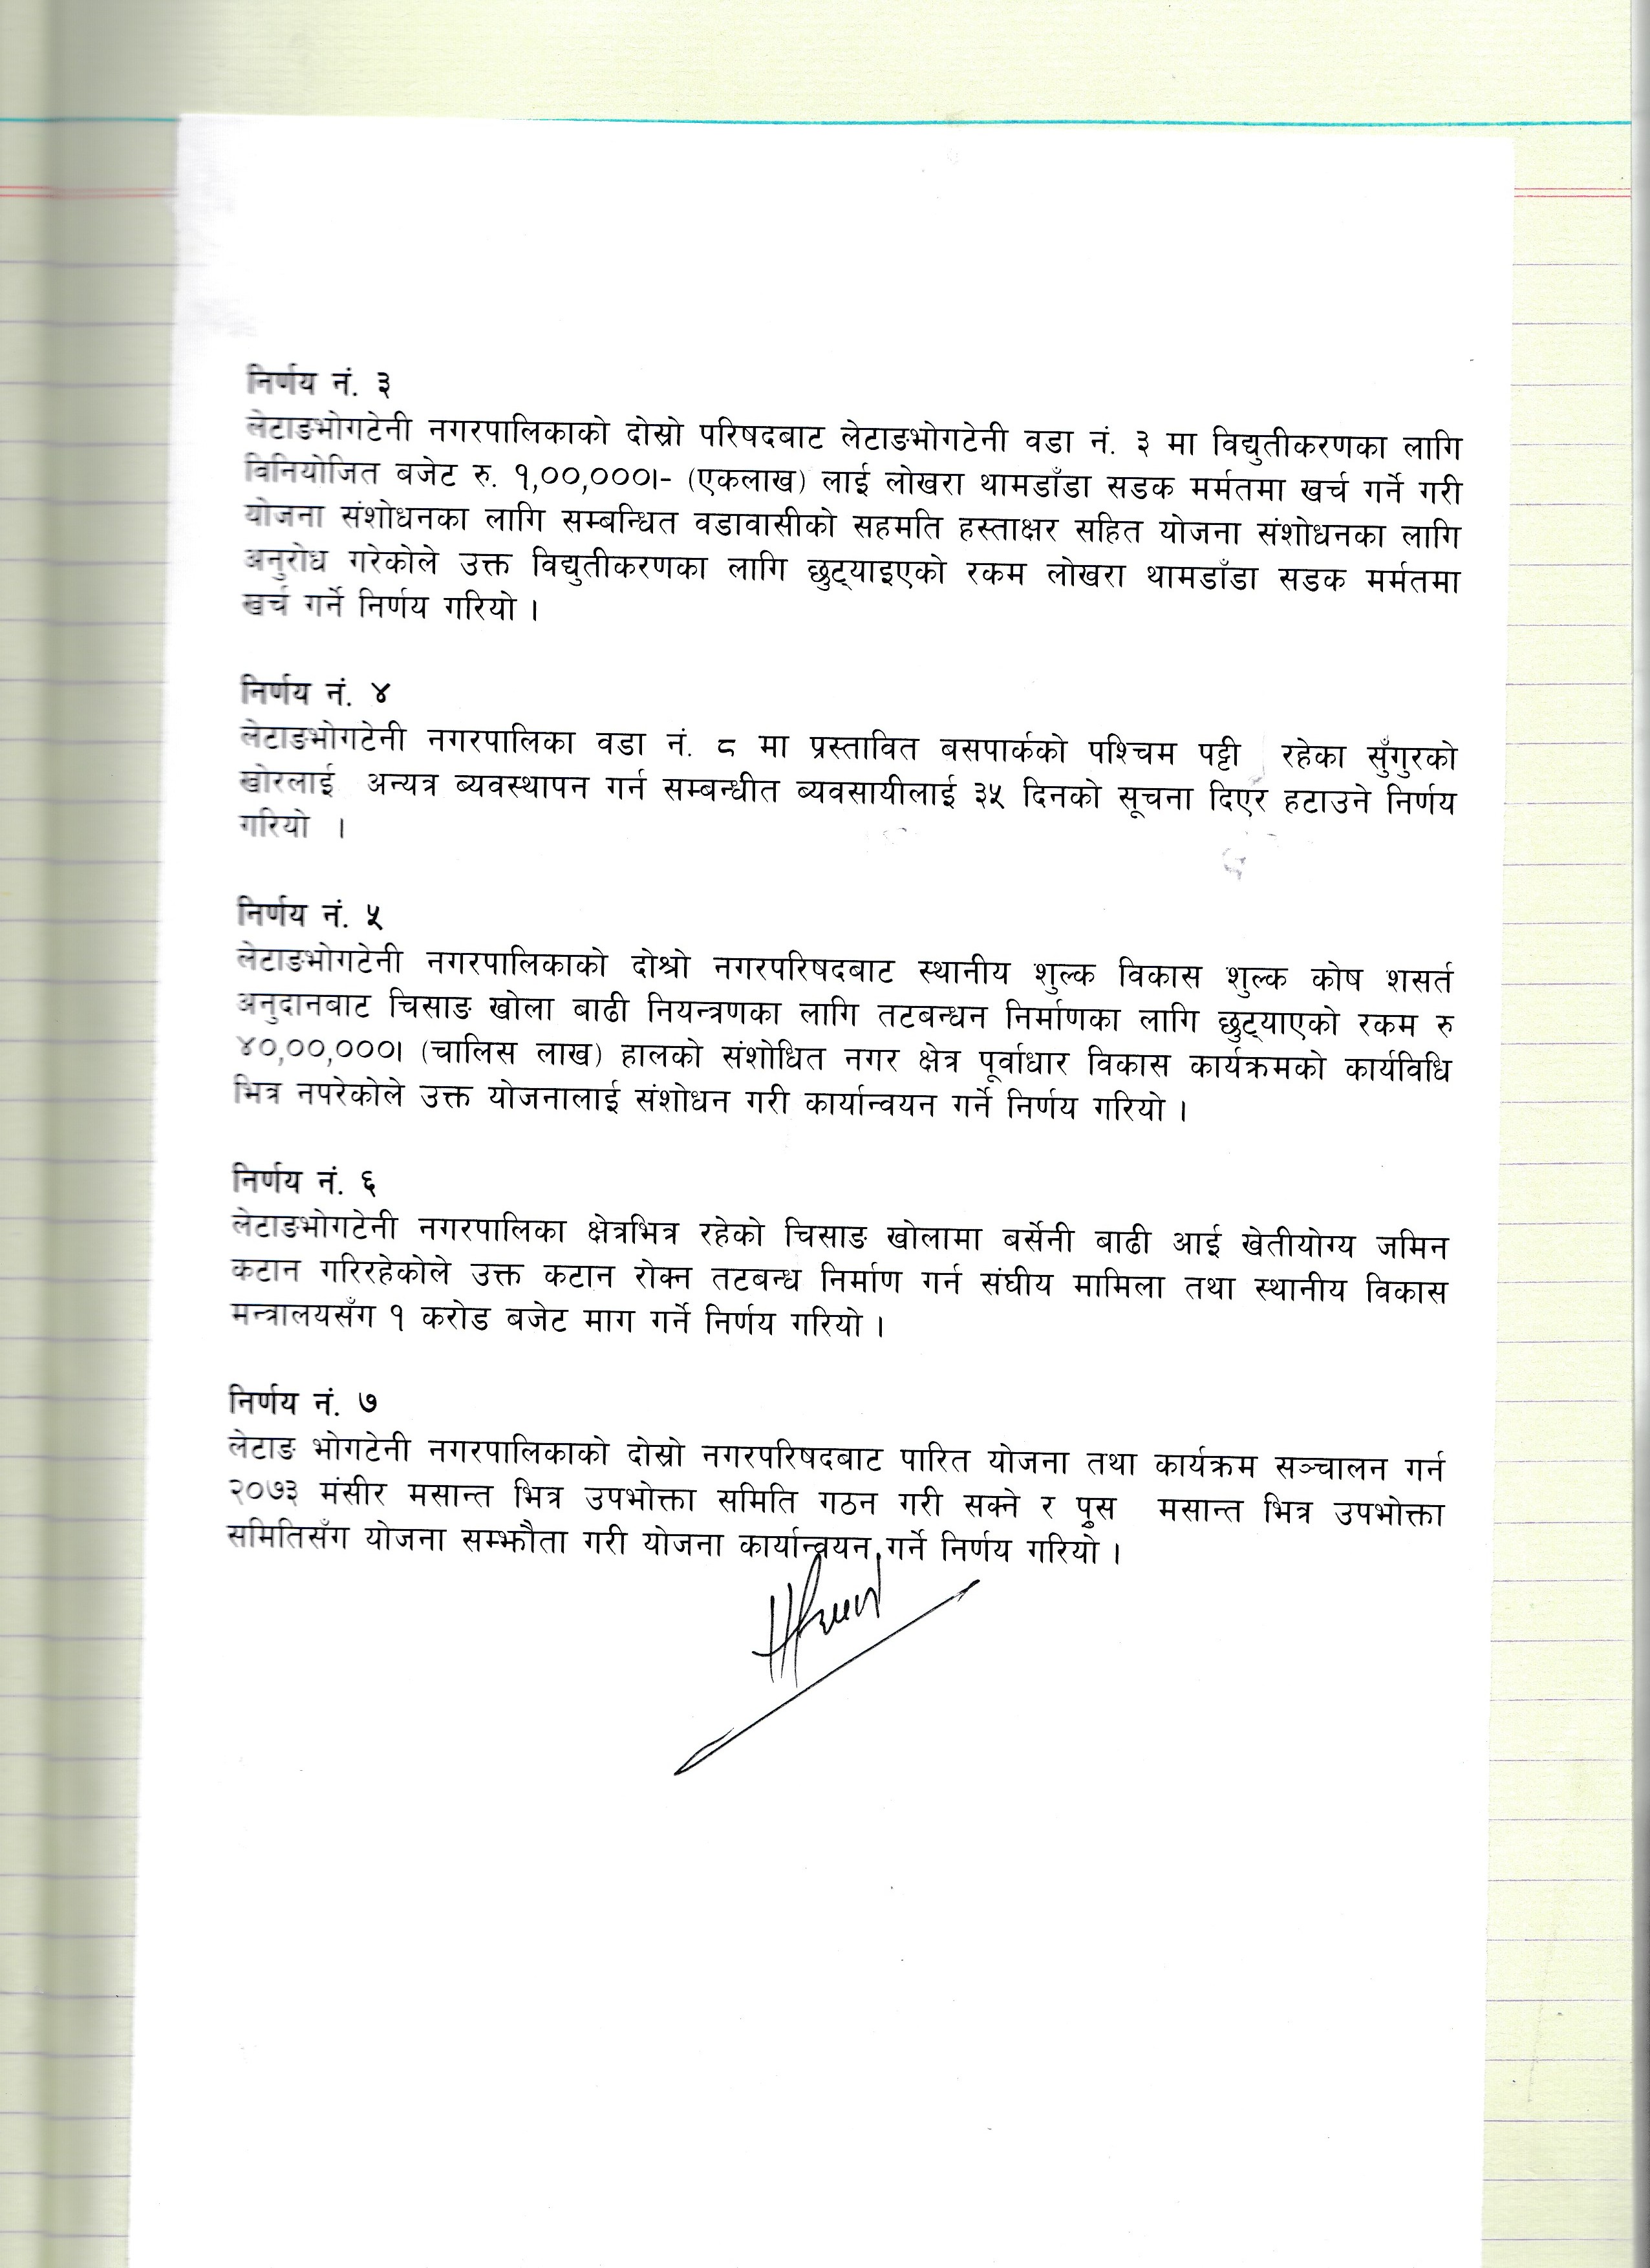 निर्णय नं. ३
लेटाङभोगटेनी नगरपालिकाको दोस्रो परिषदबाट लेटाङभोगटेनी वडा नं. ३ मा विद्युतीकरणका लागि
विनियोजित बजेट रु. १,००,०००।- (एकलाख) लाई लोखरा थामडाँडा सडक मर्मतमा खर्च गर्ने गरी
योजना संशोधनका लागि सम्बन्धित वडावासीको सहमति हस्ताक्षर सहित योजना संशोधनका लागि
अनुरोध गरेकोले उक्त विद्युतीकरणका लागि छुट्याइएको रकम लोखरा थामडाँडा सडक मर्मतमा
खर्च गर्ने निर्णय गरियो ।
निर्णय नं. ४
लेटाङभोगटेनी नगरपालिका वडा नं. ८ मा प्रस्तावित बसपार्कको पश्चिम पट्टी रहेका सुँगुरको
खोरलाई अन्यत्र ब्यवस्थापन गर्न सम्बन्धीत ब्यवसायीलाई ३५ दिनको सूचना दिएर हटाउने निर्णय
गरियो ।
निर्णय नं. ५
लेटाङभोगटेनी नगरपालिकाको दोश्रो नगरपरिषदबाट स्थानीय शुल्क विकास शुल्क कोष शसर्त
अनुदानबाट चिसाङ खोला बाढी नियन्त्रणका लागि तटबन्धन निर्माणका लागि छुट्याएको रकम रु
४०,००,०००। (चालिस लाख) हालको संशोधित नगर क्षेत्र पूर्वाधार विकास कार्यक्रमको कार्यविधि
भित्र नपरेकोले उक्त योजनालाई संशोधन गरी कार्यान्वयन गर्ने निर्णय गरियो ।
निर्णय नं. ६
लेटाङभोगटेनी नगरपालिका क्षेत्रभित्र रहेको चिसाङ खोलामा बर्सेनी बाढी आई खेतीयोग्य जमिन
कटान गरिरहेकोले उक्त कटान रोक्न तटबन्ध निर्माण गर्न संघीय मामिला तथा स्थानीय विकास
मन्त्रालयसँग १ करोड बजेट माग गर्ने निर्णय गरियो ।
निर्णय नं. ७
लेटाङ भोगटेनी नगरपालिकाको दोस्रो नगरपरिषदबाट पारित योजना तथा कार्यक्रम सञ्चालन गर्न
२०७३ मंसीर मसान्त भित्र उपभोक्ता समिति गठन गरी सक्ने र पुस मसान्त भित्र उपभोक्ता
समितिसँग योजना सम्झौता गरी योजना कार्यान्वयन गर्ने निर्णय गरियो ।